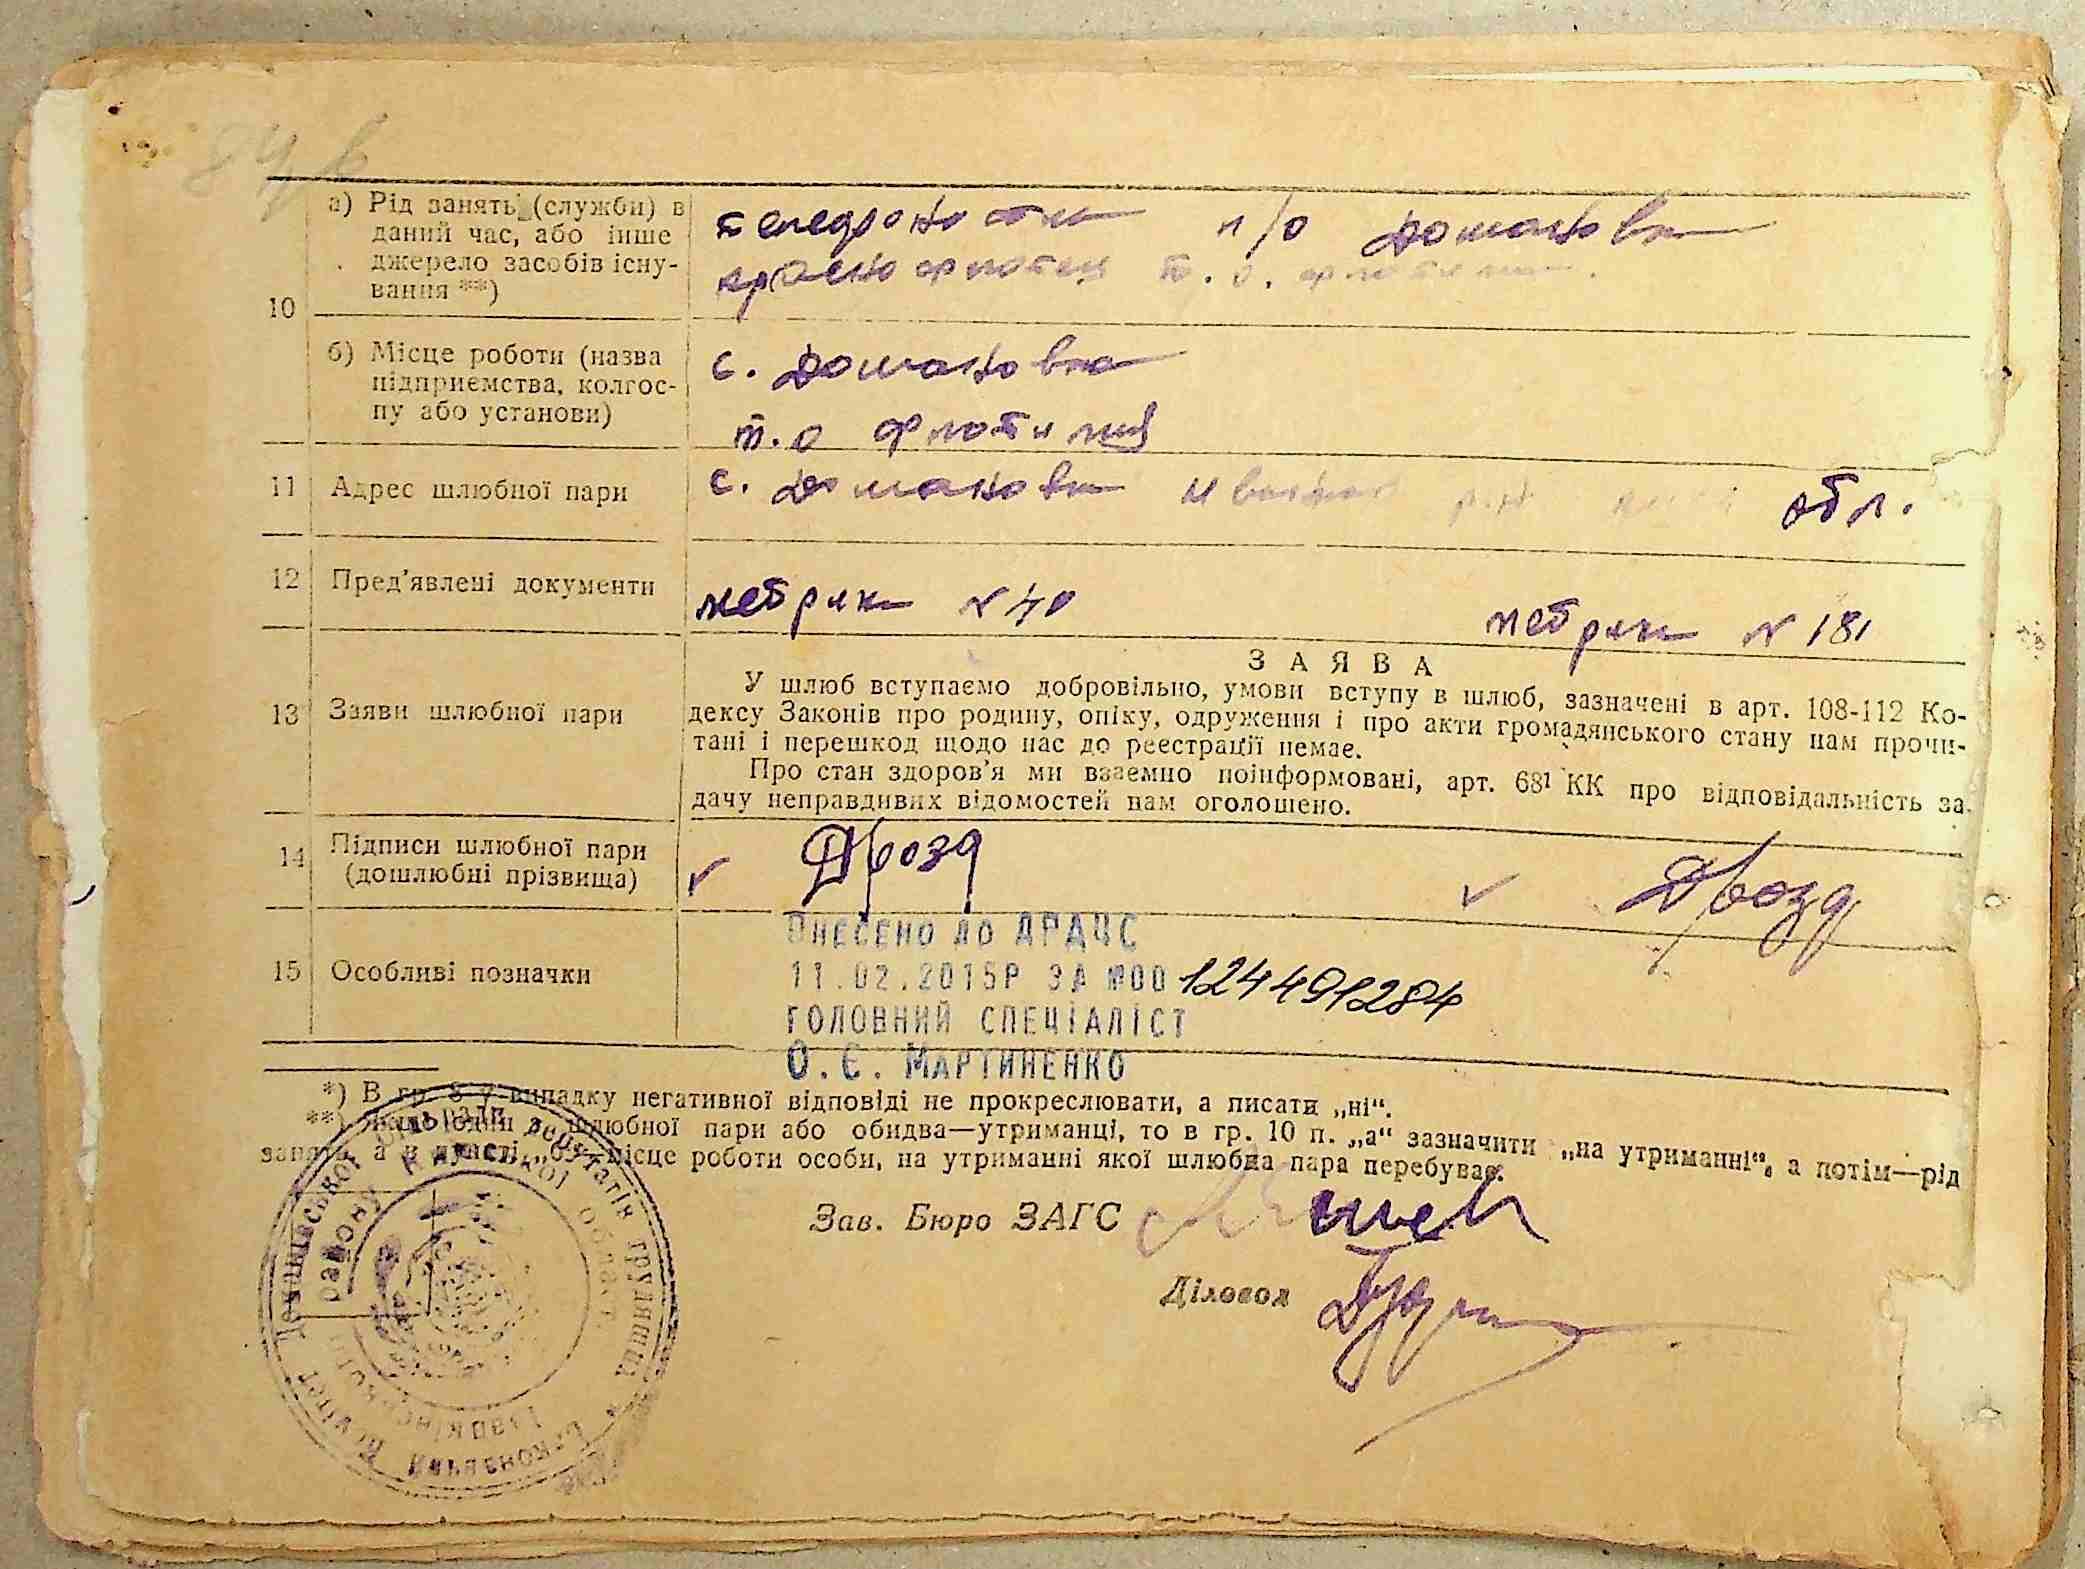 а) Рід занять (служби) в
даний час, або інше
джерело засобів існу-
вання **)
телефонистка п/о Домановка
краснофлотец т.о. флотилии.
10
б) Місце роботи (назва
підприємства, колгос-
пу або установи)
с. Домановка
т.о флотилия
11 Адрес шлюбної пари
с. Домановка обл.
12 Пред'явлені документи
метрика №40 метрика №181
13 Заяви шлюбної пари
ЗАЯВА
У шлюб вступаємо добровільно, умови вступу в шлюб, зазначені в арт. 108-112 Ко-
дексу Законів про родину, опіку, одруження і про акти громадянського стану нам прочи-
тані і перешкод щодо нас до реєстрації немає.
Про стан здоров'я ми взаємно поінформовані, арт. 68¹ КК про відповідальність за
дачу неправдивих відомостей нам оголошено.
14 Підписи шлюбної пари
(дошлюбні прізвища)
Дрозд Дрозд
15 Особливі позначки
ВНЕСЕНО ДО ДРАЦС
11.02.2015Р ЗА №00 124491284
ГОЛОВНИЙ СПЕЦІАЛІСТ
О. Є. МАРТИНЕНКО
*) В гр. 8 у випадку негативної відповіді не прокреслювати, а писати „ні“.
**) Якщо один з шлюбної пари або обидва—утриманці, то в гр. 10 п. „а“ зазначити „на утриманні“, а потім—рід
занять, а в пункті „б“—місце роботи особи, на утриманні якої шлюбна пара перебуває.
Зав. Бюро ЗАГС
Діловод